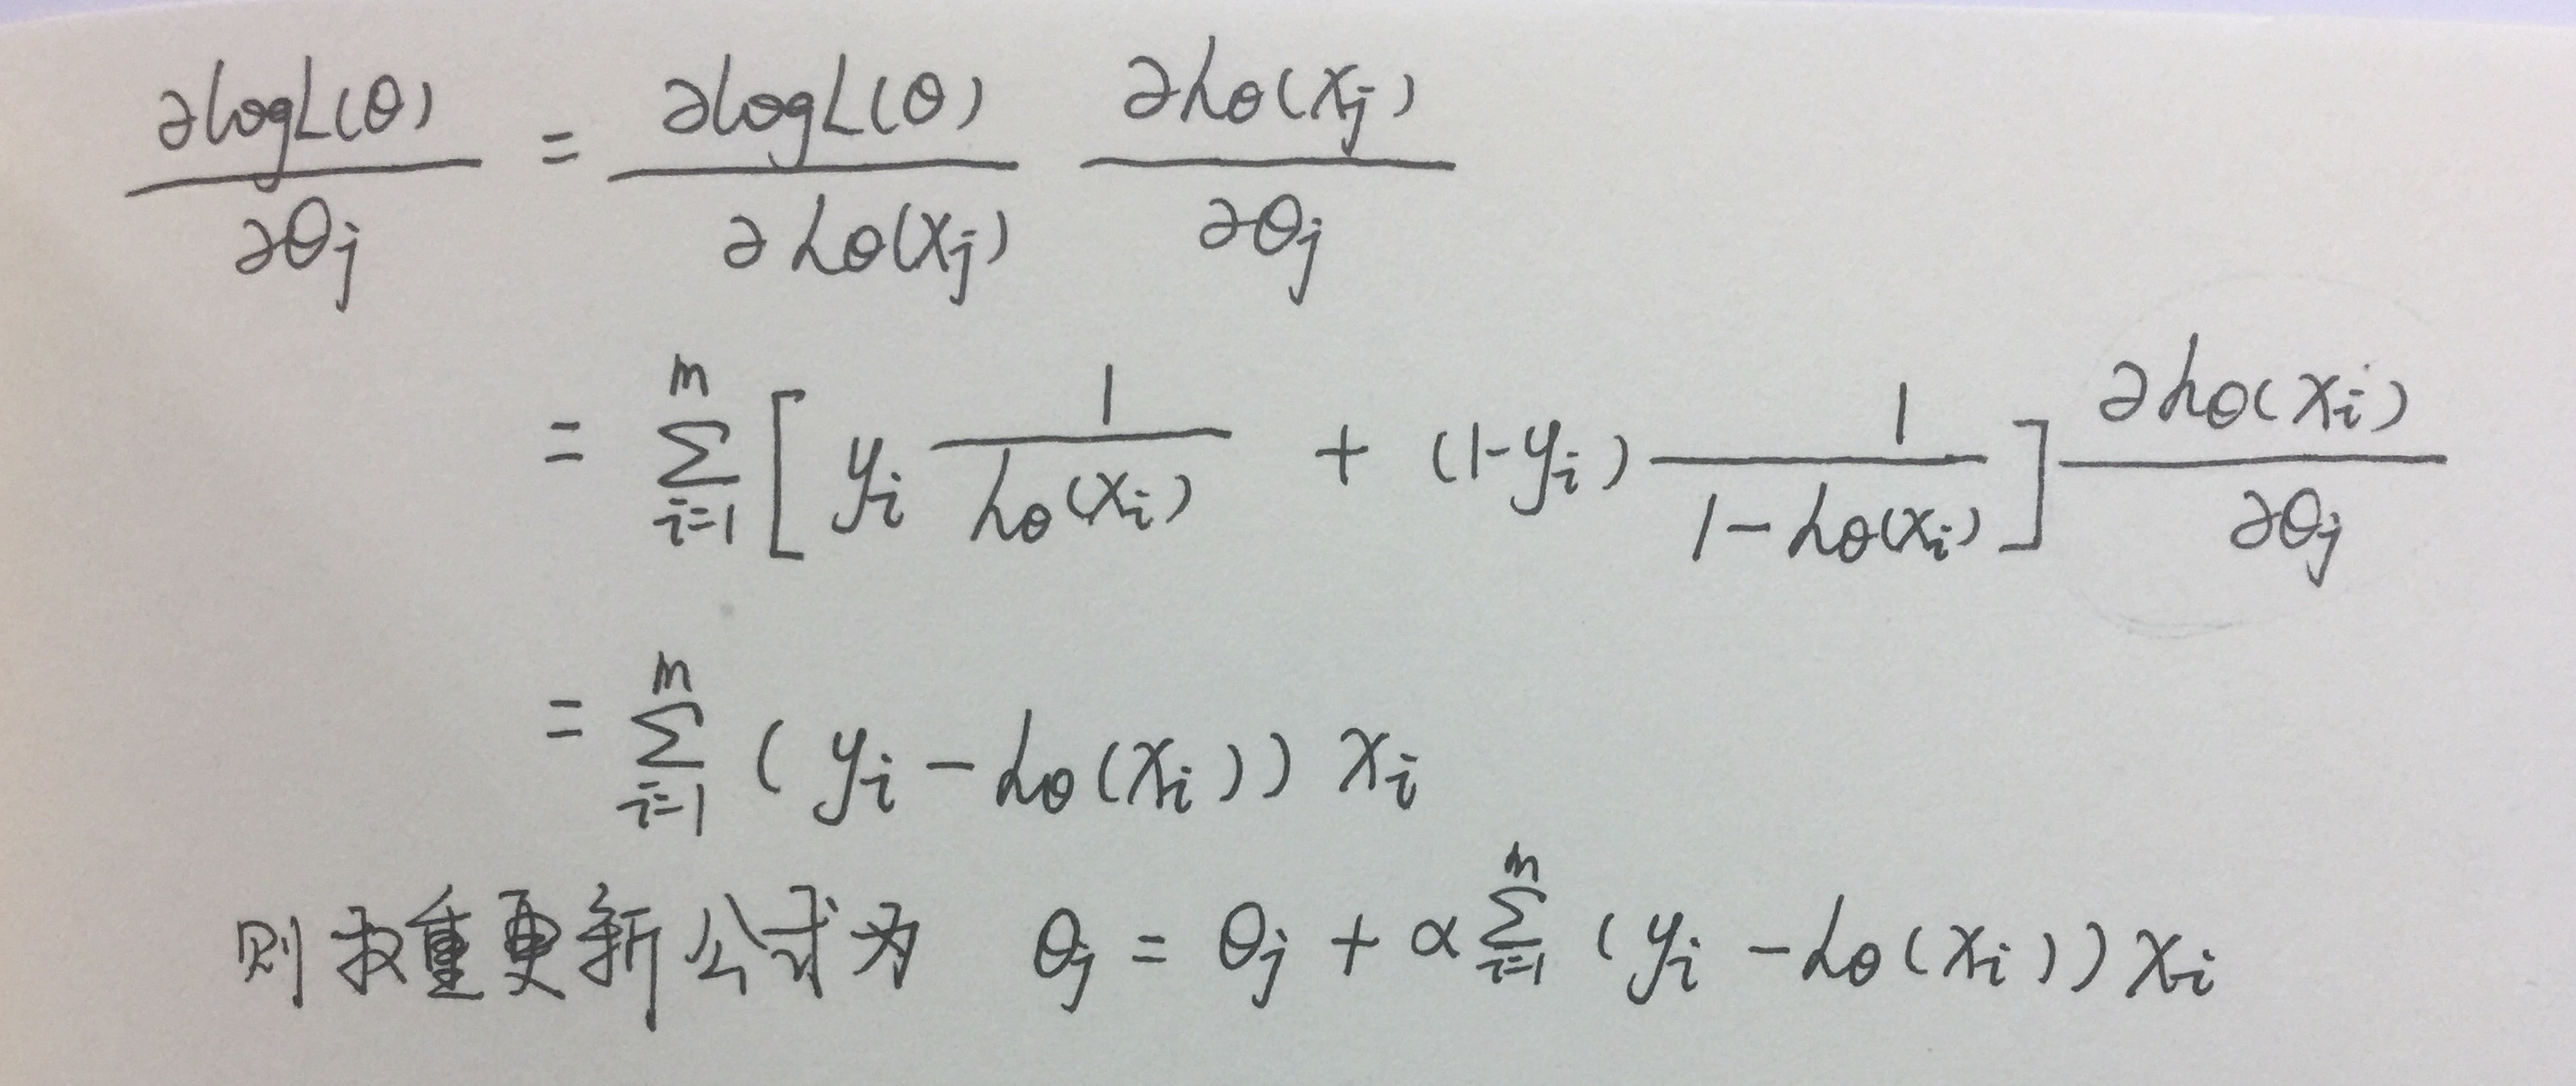 ∂logL(θ)/∂θj = ∂logL(θ)/∂hθ(xj) ∂hθ(xj)/∂θj
= Σ_{i=1}^{m} [ yi 1/hθ(xi) + (1-yi) 1/(1-hθ(xi)) ] ∂hθ(xi)/∂θj
= Σ_{i=1}^{m} (yi - hθ(xi)) xi
则权重更新公式为 θj = θj + α Σ_{i=1}^{m} (yi - hθ(xi)) xi